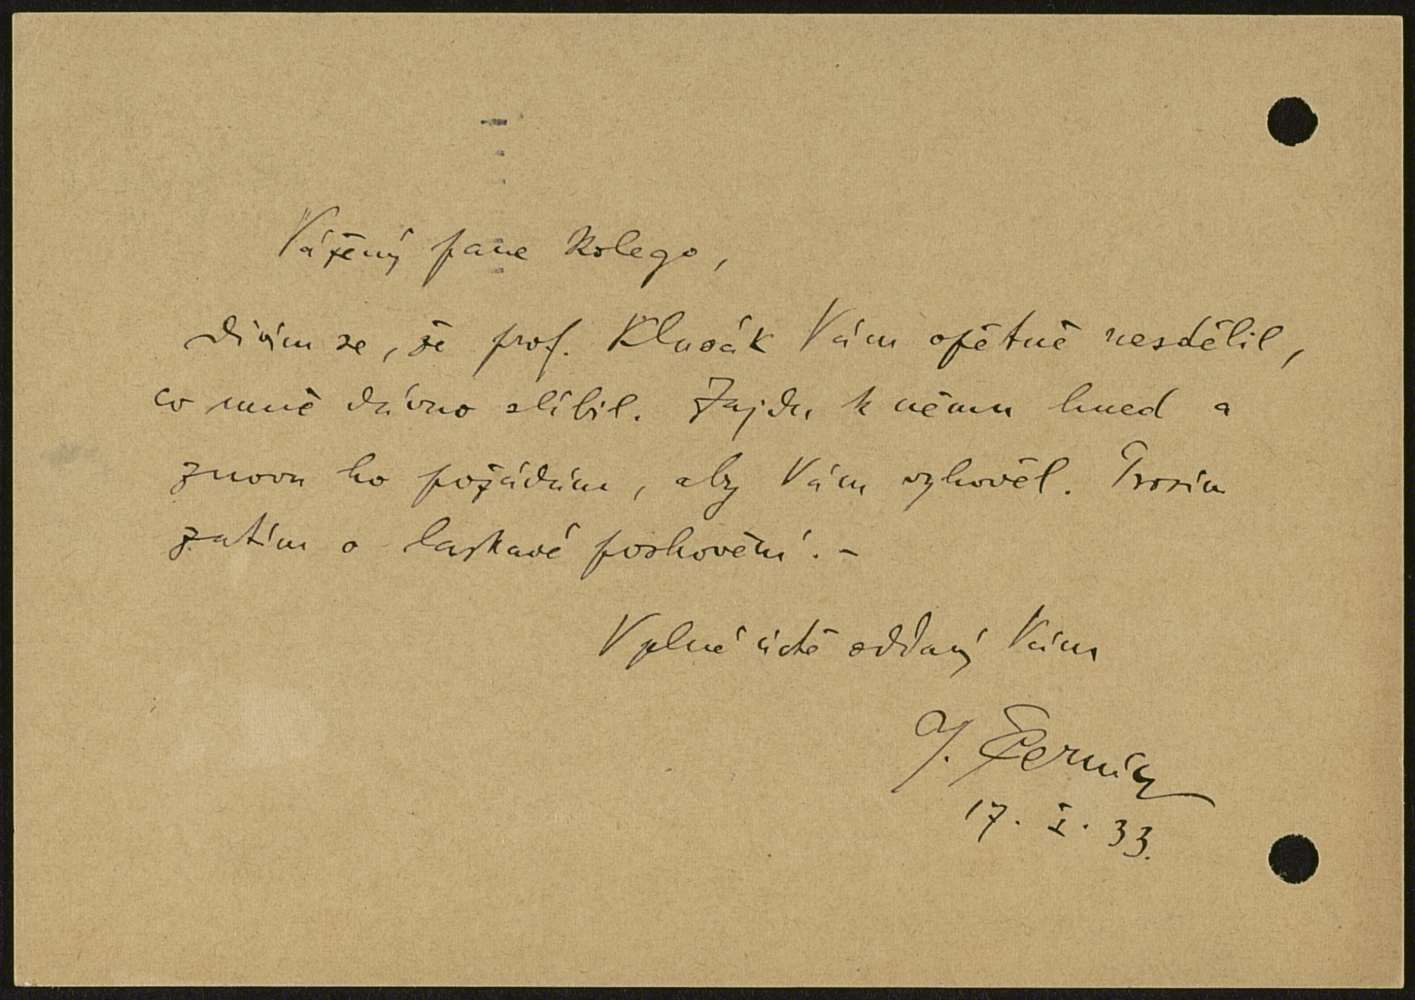 Vážený pane kolego,
divím se, že prof. Klusák Vám opětně nesdělil,
co mně dávno slíbil. Zajdu k němu hned a
znovu ho požádám, aby Vám vyhověl. Prosím
zatím o laskavé poshovění. –
V plné úctě oddaný Vám
J. Černý
17. I. 33.